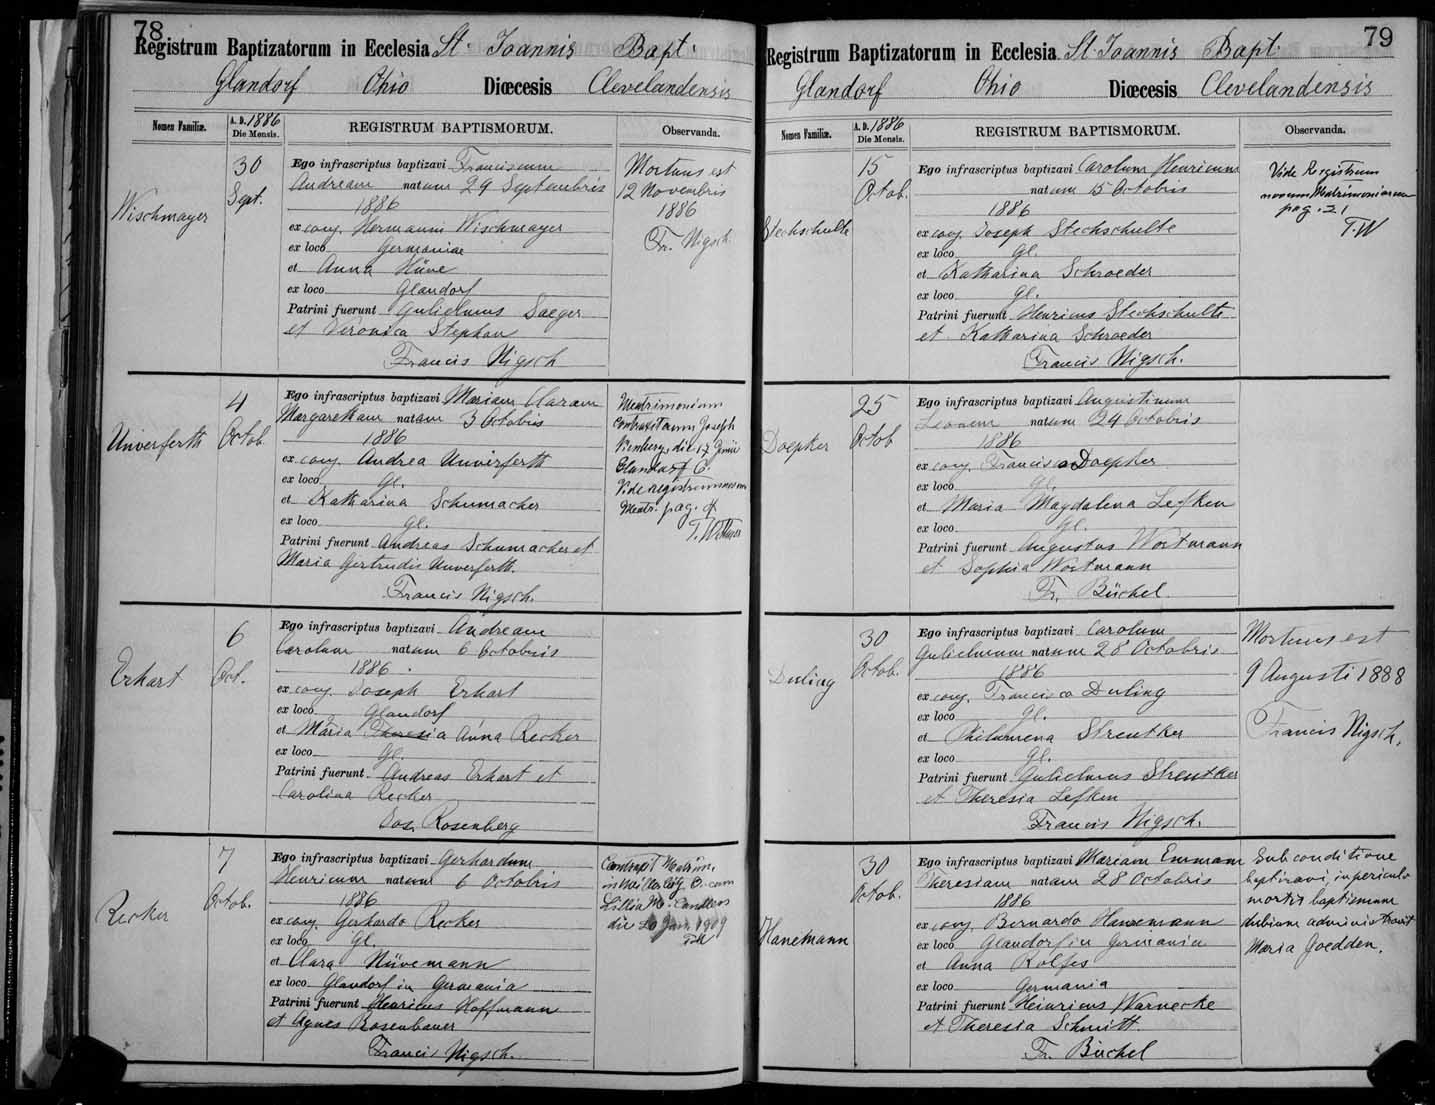 78
Registrum Baptizatorum in Ecclesia St. Joannis Bapt.
Glandorf Ohio Diœcesis Clevelandensis
Nomen Familiæ.
A. D. 1886
Die Mensis.
REGISTRUM BAPTISMORUM.
Observanda.
Wischmayer
30
Sept.
Ego infrascriptus baptizavi Franciscum
Andream natum 29 Septembris
1886
ex conj. Hermanni Wischmayer
ex loco Germaniae
et Anna Hüve
ex loco Glandorf
Patrini fuerunt Gulielmus Saeger
et Veronica Stephan
Francis Nigsch
Mortuus est
12 Novembris
1886
Fr. Nigsch
Unverferth
4
Octob
Ego infrascriptus baptizavi Mariam Claram
Margaretham natam 3 Octobris
1886
ex conj. Andrea Unverferth
ex loco Gl.
et Katharina Schumacher
ex loco Gl.
Patrini fuerunt Andreas Schumacher et
Maria Gertrudis Unverferth.
Francis Nigsch.
Matrimonium
contraxit cum Joseph
die 17 Junii
Glandorf O.
Vide registrum novum
Matr. pag. 4
Erhart
6
Oct.
Ego infrascriptus baptizavi Andream
Carolum natum 6 Octobris
1886.
ex conj. Joseph Erhart
ex loco Glandorf
et Maria Theresia Anna Recker
ex loco Gl.
Patrini fuerunt Andreas Erhart et
Carolina Recker
Jos. Rosenberg
Recker
7
Octob.
Ego infrascriptus baptizavi Gerhardum
Henricum natum 6 Octobris
1886
ex conj. Gerhardo Recker
ex loco Gl.
et Clara Nüvemann
ex loco Glandorf in Germania
Patrini fuerunt Henricus Hoffmann
et Agnes Rosenbauer
Francis Nigsch.
Contraxit Matrim.
in O. cum
Lillia M.
die Jan. 1909
79
Registrum Baptizatorum in Ecclesia St. Joannis Bapt.
Glandorf Ohio Diœcesis Clevelandensis
Nomen Familiæ.
A. D. 1886
Die Mensis.
REGISTRUM BAPTISMORUM.
Observanda.
Stechschulte
15
Octob.
Ego infrascriptus baptizavi Carolum Henricum
natum 15 Octobris
1886
ex conj. Joseph Stechschulte
ex loco Gl.
et Katharina Schroeder
ex loco Gl.
Patrini fuerunt Henricus Stechschulte
et Katharina Schroeder
Francis Nigsch.
Vide Registrum
novum Matrimoniorum
pag. 21
T.W
Doepker
25
Octob
Ego infrascriptus baptizavi Augustinum
Leonem natum 24 Octobris
1886
ex conj. Francisco Doepker
ex loco Gl.
et Maria Magdalena Lefken
ex loco Gl.
Patrini fuerunt Augustus Wortmann
et Sophia Wortmann
Fr. Büchel.
Duling
30
Octob.
Ego infrascriptus baptizavi Carolum
Gulielmum natum 28 Octobris
1886
ex conj. Francisco Duling
ex loco Gl.
et Philumena Streutker
ex loco Gl.
Patrini fuerunt Gulielmus Streutker
et Theresia Lefken
Francis Nigsch.
Mortuus est
9 Augusti 1888
Francis Nigsch.
Hanemann
30
Octob.
Ego infrascriptus baptizavi Mariam Emmam
Theresiam natam 28 Octobris
1886
ex conj. Bernardo Hanemann
ex loco Glandorf in Germania
et Anna Rolfes
ex loco Germania
Patrini fuerunt Heinricus Warnecke
et Theresia Schmitt.
Fr. Büchel
Sub conditione
baptizavi, in periculo
mortis baptismum
dubium administravit
Maria Goedden.